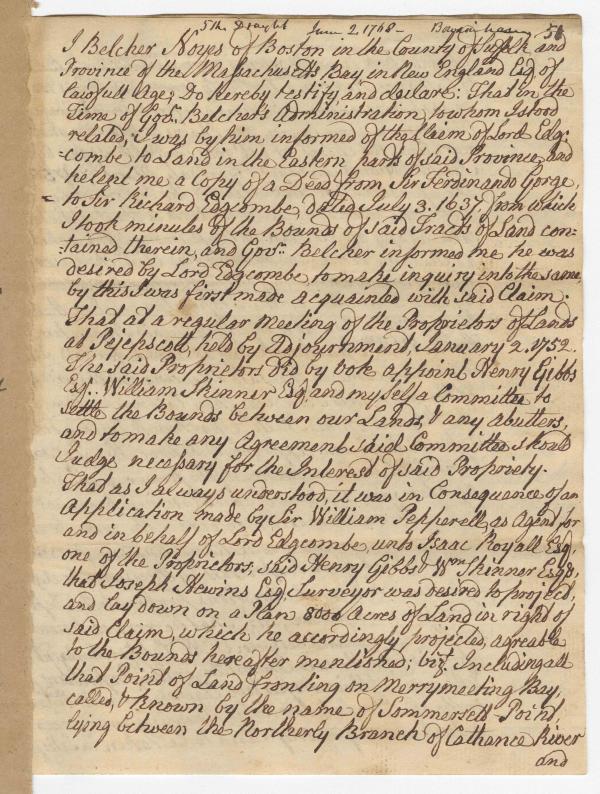 5th Draught June 2. 1768 - 51
I Belcher Noyes of Boston in the County of Suffolk and
Province of the Massachusetts Bay in New England Esq. of
lawfull Age; Do hereby testify and declare: That in the
Time of Govr. Belcher's Administration, to whom I stood
related, I was by him informed of the Claim of Lord Edg:
=combe to Land in the Eastern parts of said Province, and
he lent me a Copy of a Deed from Sir Ferdinando Gorge,
to Sir Richard Edgcombe, dated July 3. 1637, from which
I took minutes of the Bounds of said Tracts of Land con-
=tained therein, and Govr. Belcher informed me he was
desired by Lord Edgcombe to make inquiry into the same,
by this I was first made acquainted with said Claim.
That at a regular Meeting of the Proprietors of Lands
at Pejepscott, held by Adjournment, January 2. 1752.
The said Proprietors Did by Vote appoint Henry Gibbs
Esq. William Skinner Esq and my self a Committee to
settle the Bounds between our Lands, & any abutters,
and to make any Agreement said Committee should
Judge necessary for the Interest of said Propriety.
That as I always understood, it was in Consequence of an
Application made by Sir William Pepperell, as Agent for
and in behalf of Lord Edgcombe, unto Isaac Royall Esq.
one of the Proprietors, said Henry Gibbs & Wm Skinner Esqs,
that Joseph Hewins Esq Surveyor was desired to project,
and lay down on a Plan 8000 Acres of Land in right of
said Claim, which he accordingly projected, agreable
to the Bounds hereafter mentioned; vizt. Including all
that Point of Land fronting on Merrymeeting Bay,
called, & known by the name of Sommersett Point,
lying between the Northerly Branch of Cathance River
and